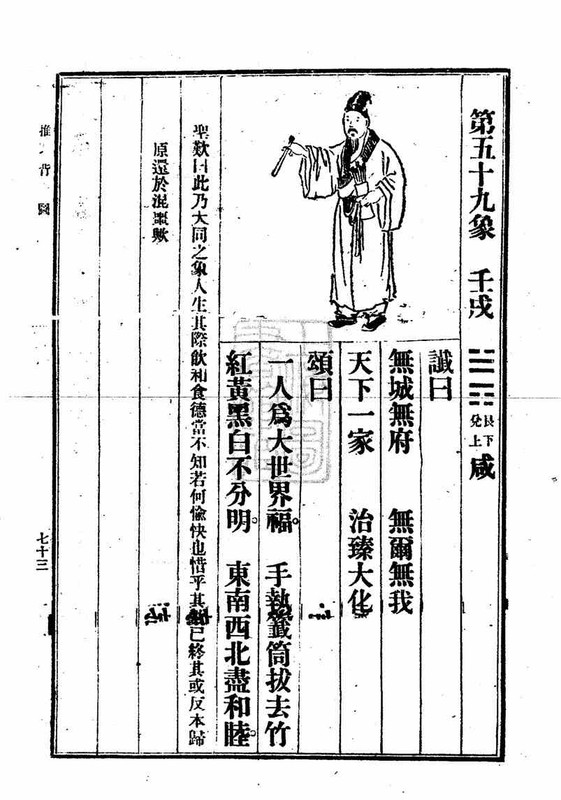 第五十九象 壬戌 艮下 兌上 咸
讖曰
無城無府 無爾無我
天下一家 治臻大化
頌曰
一人爲大世界福。 手執籤筒拔去竹
紅黃黑白不分明。 東南西北盡和睦。
聖歎曰此乃大同之象人生其際飲和食德當不知若何愉快也惜乎其已終其或反本歸
原還於混噩歟
推背圖
七十三